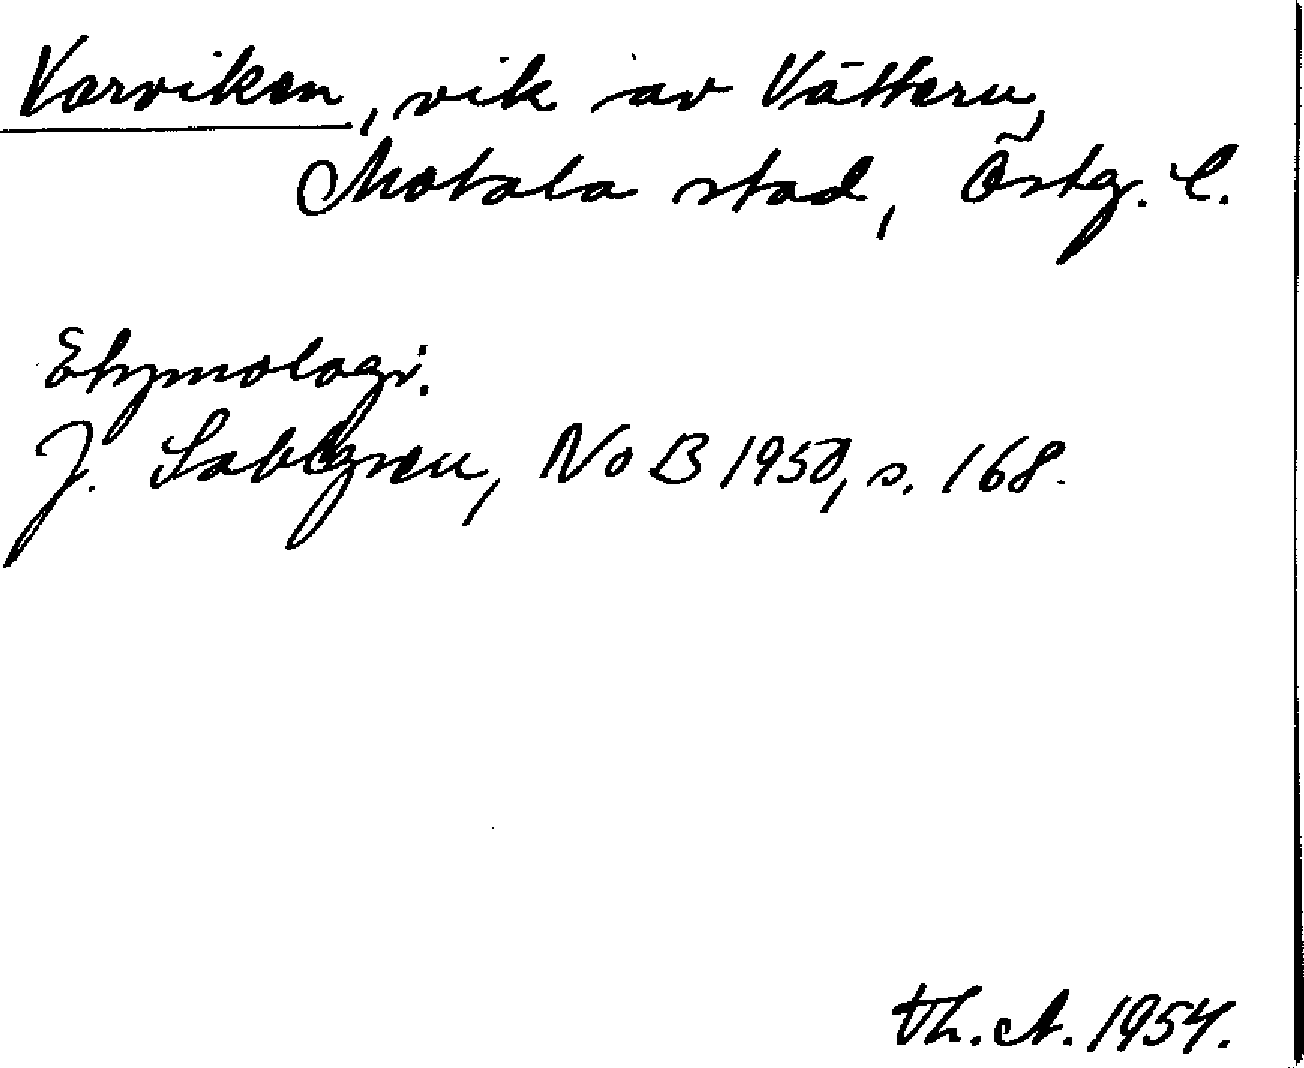 Varviken, vik av Vättern,
Motala stad, Östg. l.
Etymologi.
J. Sahlgren, NoB 1950, s. 168.
Th. A. 1954.